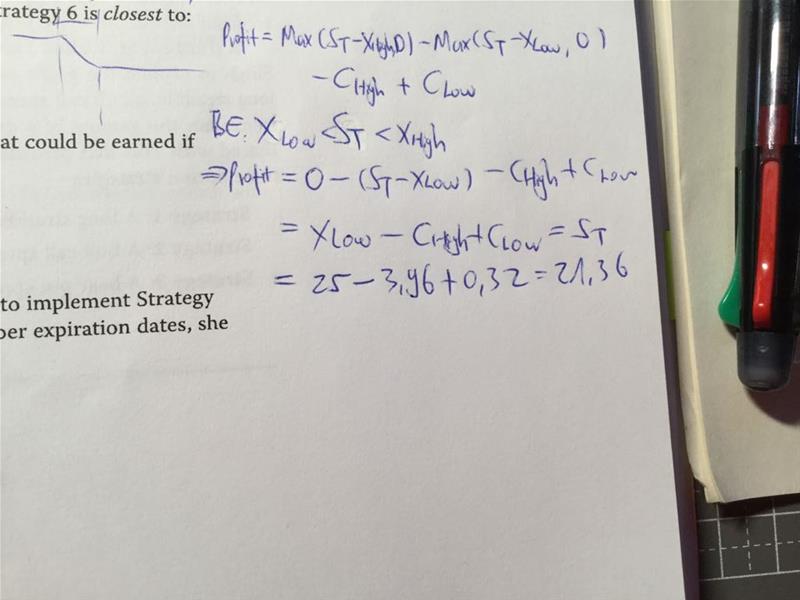 rategy 6 is closest to:
Profit = Max(ST-XHigh,0) - Max(ST-XLow, 0)
- CHigh + CLow
at could be earned if
BE: XLow < ST < XHigh
⇒ Profit = 0 - (ST-XLow) - CHigh + CLow
= XLow - CHigh + CLow = ST
= 25 - 3,96 + 0,32 = 21,36
to implement Strategy
per expiration dates, she